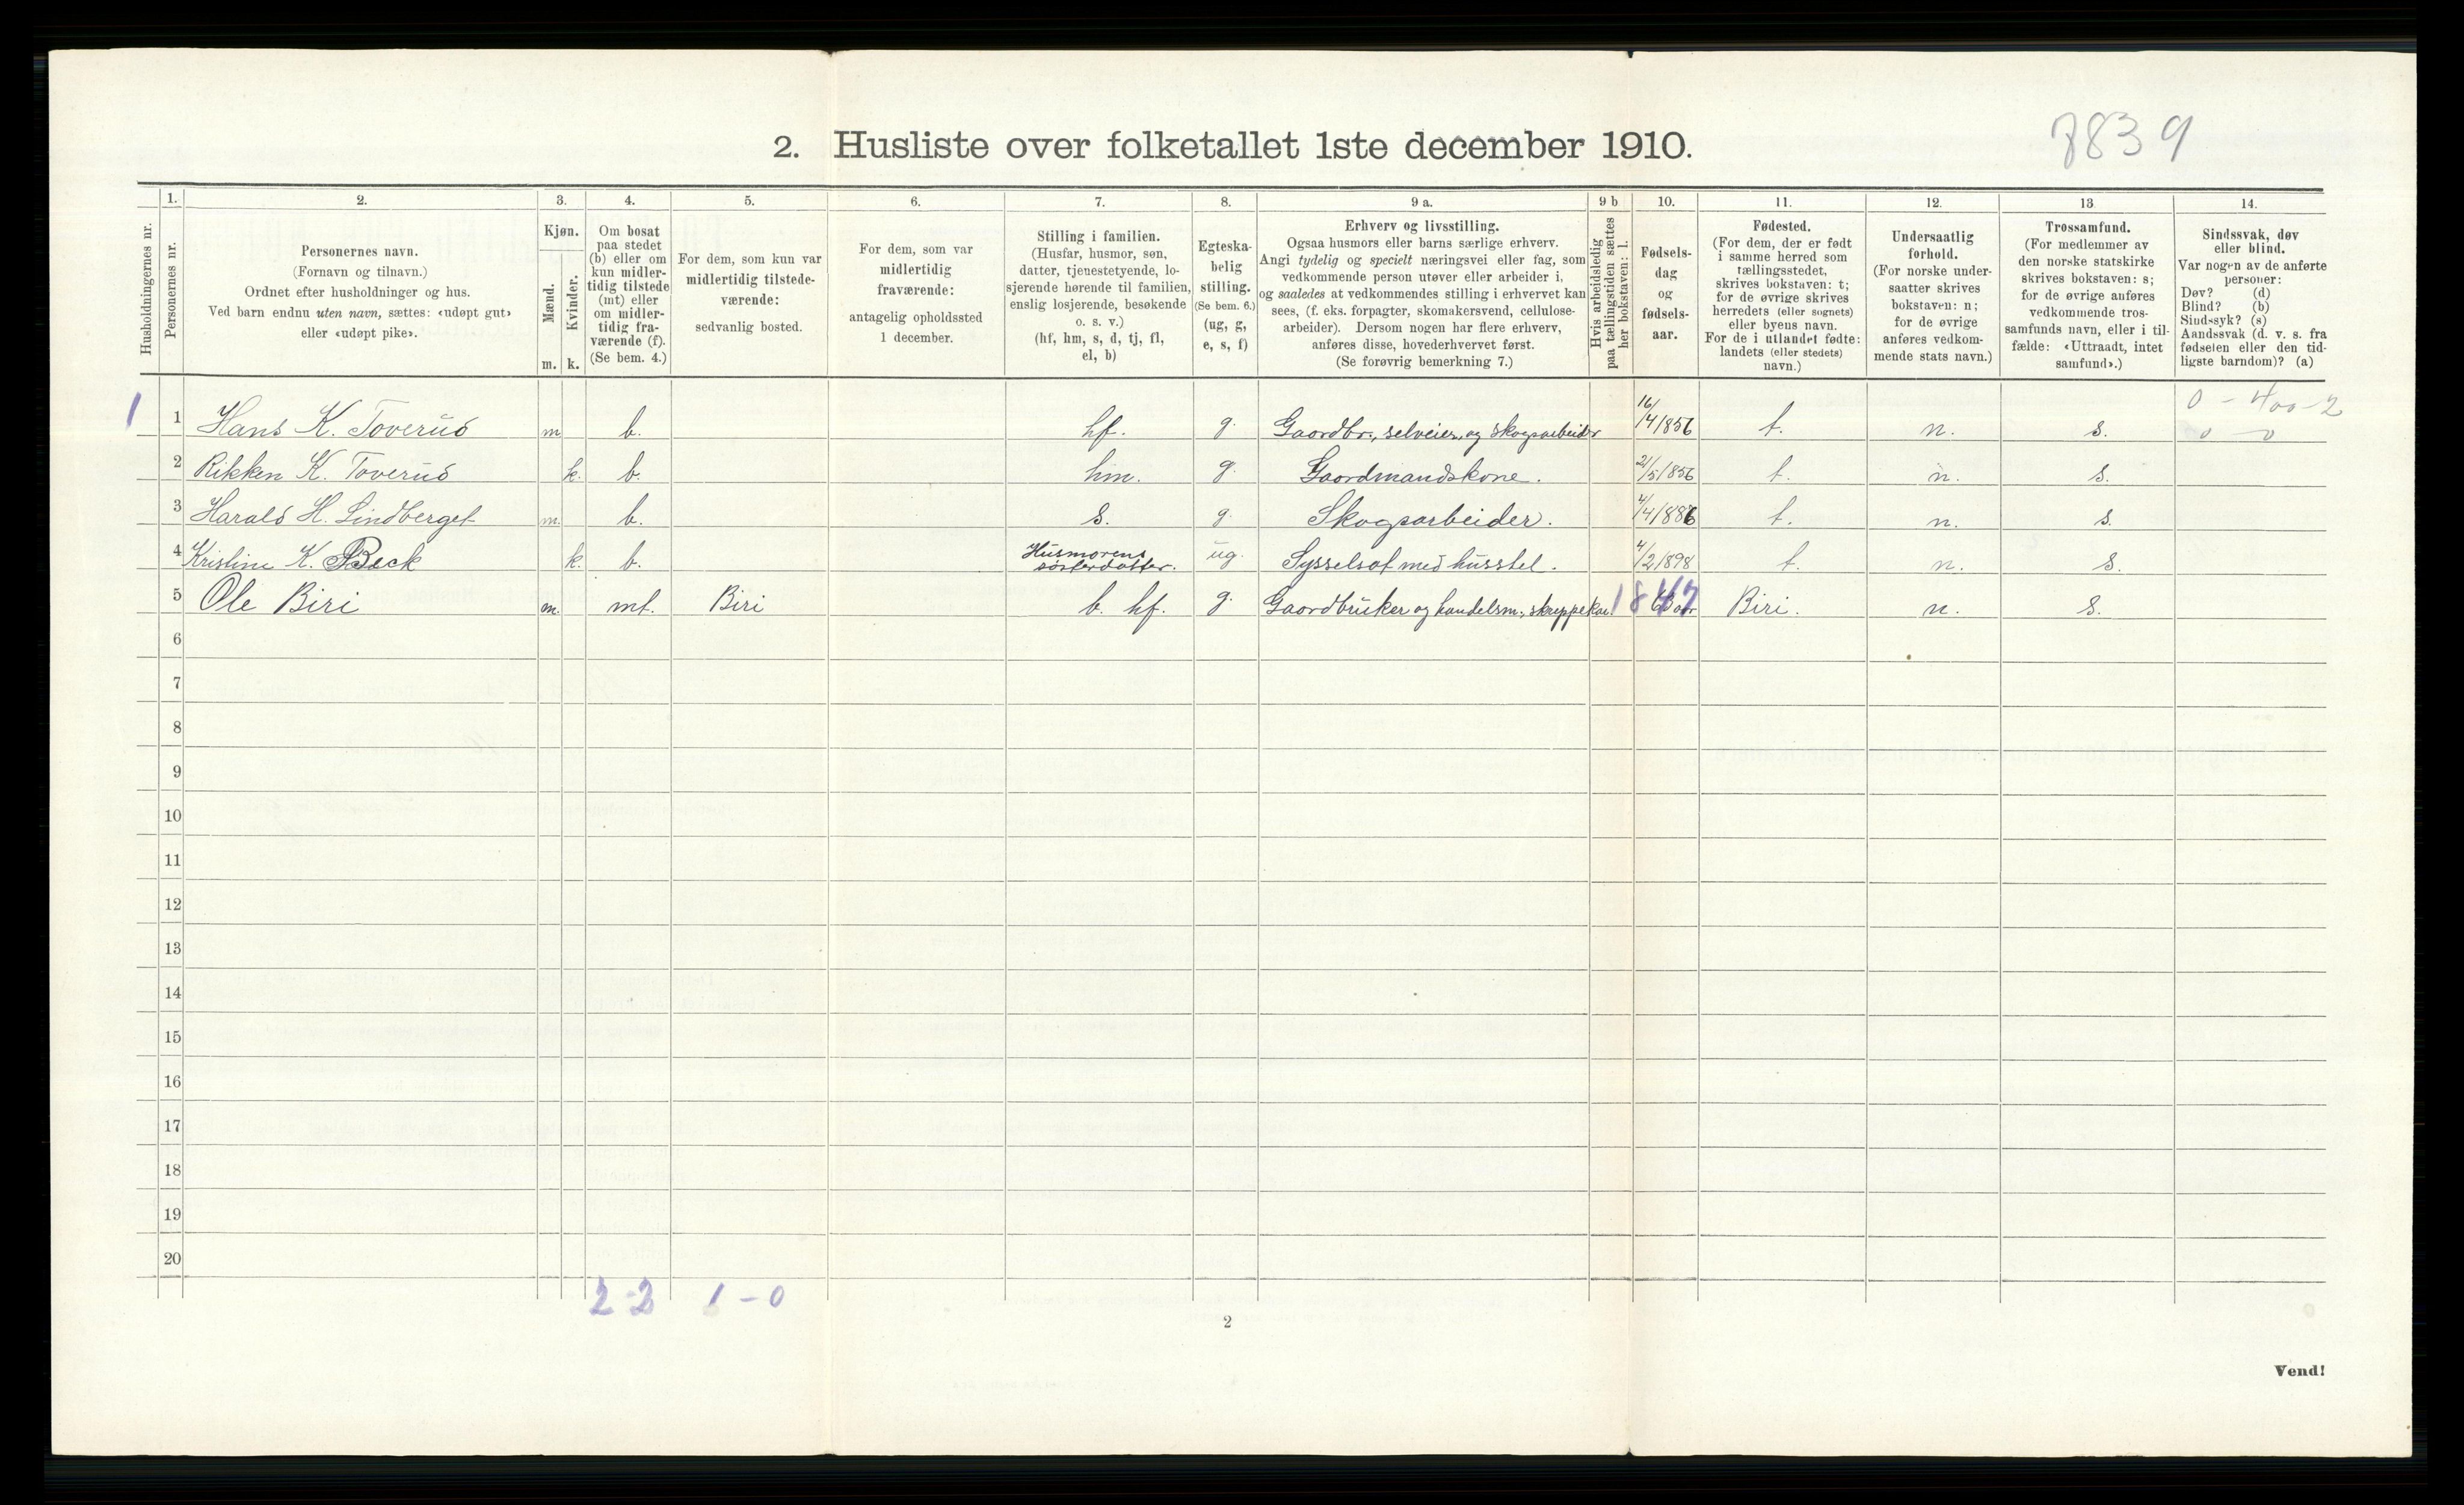 7839
2. Husliste over folketallet 1ste december 1910.
Husholdningernes nr.
1.
Personernes nr.
2.
Personernes navn.
(Fornavn og tilnavn.)
Ordnet efter husholdninger og hus.
Ved barn endnu uten navn, sættes: «udøpt gut»
eller «udøpt pike».
3.
Kjøn.
Mænd.
Kvinder.
m. k.
4.
Om bosat
paa stedet
(b) eller om
kun midler-
tidig tilstede
(mt) eller
om midler-
tidig fra-
værende (f).
(Se bem. 4.)
5.
For dem, som kun var
midlertidig tilstede-
værende:
sedvanlig bosted.
6.
For dem, som var
midlertidig
fraværende:
antagelig opholdssted
1 december.
7.
Stilling i familien.
(Husfar, husmor, søn,
datter, tjenestetyende, lo-
sjerende hørende til familien,
enslig losjerende, besøkende
o. s. v.)
(hf, hm, s, d, tj, fl,
el, b)
8.
Egteska-
belig
stilling.
(Se bem. 6.)
(ug, g,
e, s, f)
9 a.
Erhverv og livsstilling.
Ogsaa husmors eller barns særlige erhverv.
Angi tydelig og specielt næringsvei eller fag, som
vedkommende person utøver eller arbeider i,
og saaledes at vedkommendes stilling i erhvervet kan
sees, (f. eks. forpagter, skomakersvend, cellulose-
arbeider). Dersom nogen har flere erhverv,
anføres disse, hovederhvervet først.
(Se forøvrig bemerkning 7.)
9 b
Hvis arbeidsledig
paa tællingstiden sættes
her bokstaven: l.
10.
Fødsels-
dag
og
fødsels-
aar.
11.
Fødested.
(For dem, der er født
i samme herred som
tællingsstedet,
skrives bokstaven: t;
for de øvrige skrives
herredets (eller sognets)
eller byens navn.
For de i utlandet fødte:
landets (eller stedets)
navn.)
12.
Undersaatlig
forhold.
(For norske under-
saatter skrives
bokstaven: n;
for de øvrige
anføres vedkom-
mende stats navn.)
13
Trossamfund.
(For medlemmer av
den norske statskirke
skrives bokstaven: s;
for de øvrige anføres
vedkommende tros-
samfunds navn, eller i til-
fælde: «Uttraadt, intet
samfund».)
14.
Sindssvak, døv
eller blind.
Var nogen av de anførte
personer:
Døv? (d)
Blind? (b)
Sindssyk? (s)
Aandssvak (d. v. s. fra
fødselen eller den tid-
ligste barndom)? (a)
0 - 400 - 2
1 1 Hans K. Toverud m b. hf. g. Gaardbr., selveier, og skogsarbeider 16/4 1856 t. n. s. 0 - 0
2 Rikken K. Toverud k. b. hm. g. Gaardmandskone. 21/5 1856 t. n. s.
3 Harald H. Lindberget m. b. s. g. Skogsarbeider. 4/4 1886 t. n. s.
4 Kristine K. Beck k. b. Husmorens søsterdatter. ug. Sysselsat med husstel. 4/2 1898 t. n. s.
5 Ole Biri m. mt. Biri b. hf. g. Gaardbruker og handelsm., skreppekar. 1847 Biri. n. s.
6
7
8
9
10
11
12
13
14
15
16
17
18
19
20
2-2 1-0
2
Vend!